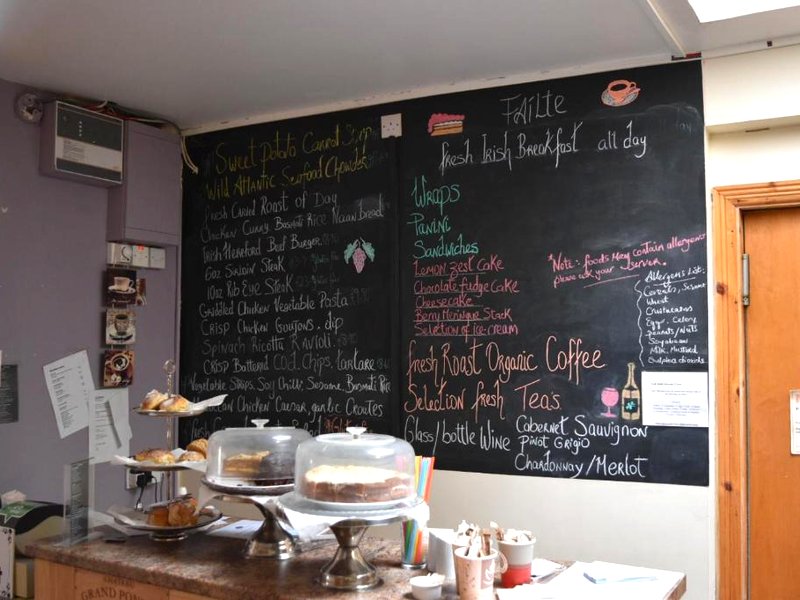 Sweet Potato Carrot Soup
Wild Atlantic Seafood Chowder
Fresh Carved Roast of Day
Chicken Curry Basmati Rice Naan bread
Irish Hereford Beef Burger
6oz Sirloin Steak
10oz Rib Eye Steak
Griddled Chicken Vegetable Pasta
Crisp Chicken Goujons, dip
Spinach Ricotta Ravioli
Crisp Battered Cod, Chips, tartare
Vegetable Strips Soy Chilli Sesame Basmati Rice
Chicken Caesar garlic Croutes
FAILTE
fresh Irish Breakfast all day
Wraps
Panini
Sandwiches
Lemon zest Cake
Chocolate fudge Cake
Cheesecake
Berry Meringue Stack
Selection of Ice-cream
*Note: foods May Contain allergens
please ask your server.
Allergens List:
Cereals, Sesame
Wheat
Crustaceans
Eggs, Celery
peanuts/Nuts
Soyabean
Milk, Mustard
Sulpha dioxide
fresh Roast Organic Coffee
Selection fresh Teas
Glass/bottle Wine
Cabernet Sauvignon
Pinot Grigio
Chardonnay/Merlot
GRAND